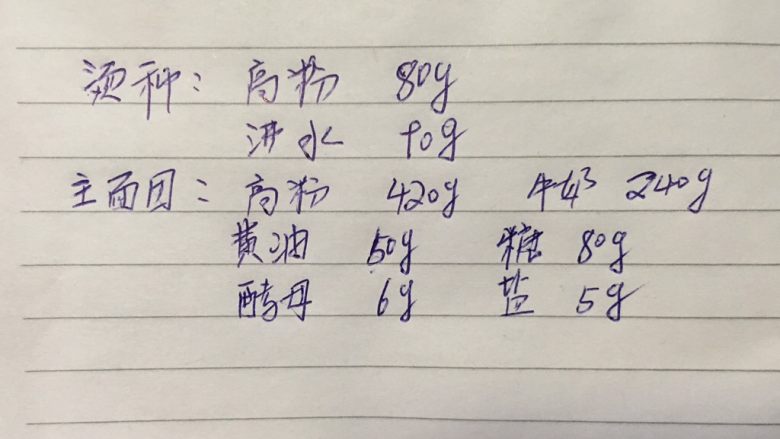 烫种：高粉 80g
沸水 90g
主面团：高粉 420g 牛奶 240g
黄油 50g 糖 80g
酵母 6g 盐 5g